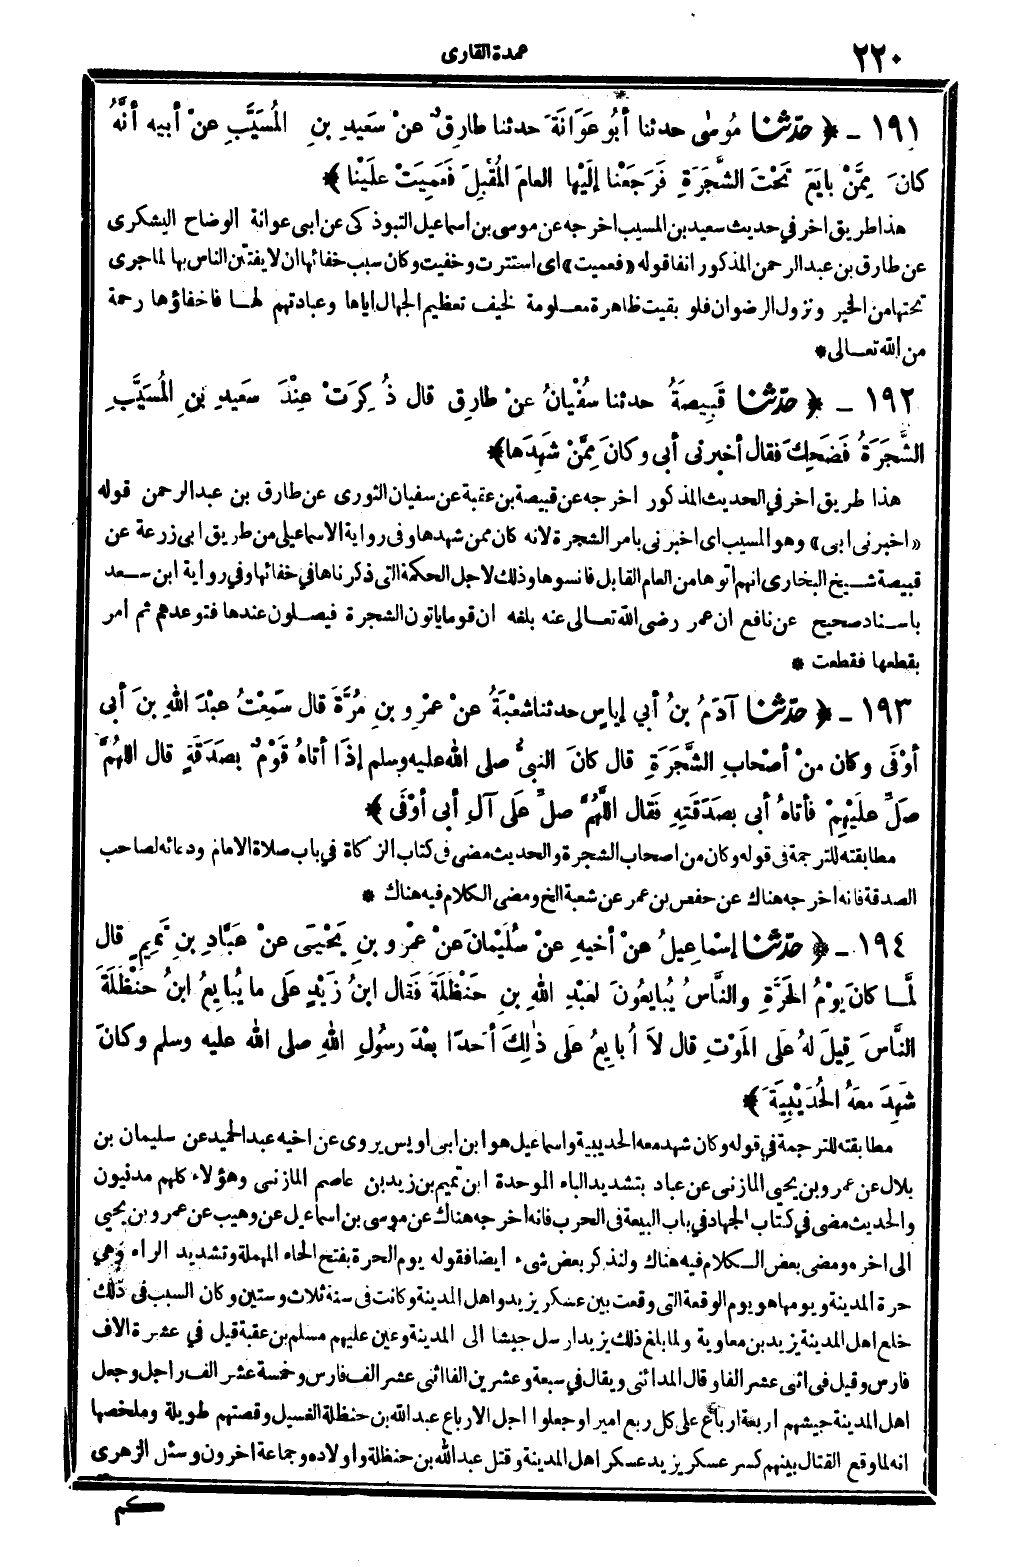 ٢٢٠
عمدة القارى
١٩١ ـ ﴿ حدّثنا مُوسٰى حدثنا أبُو عَوَانَةَ حدثنا طارِقٌ عنْ سَعِيدِ بنِ المُسَيَّبِ عنْ أبيه أنَّهُ
كانَ مِمَّنْ بايَعَ تَحْتَ الشَّجَرَةِ فَرَجَعْنا إلَيْها العامَ المُقْبِلَ فَعَمِيَتْ علَيْنا ﴾
هذا طريق اخر في حديث سعيد بن المسيب اخرجه عن موسى بن اسماعيل التبوذكى عن ابى عوانة الوضاح اليشكرى
عن طارق بن عبد الرحمن المذكور انفا قوله «فعميت» اى استترت وخفيت وكان سبب خفائها ان لا يفتتن الناس بها لما جرى
تحتها من الخير ونزول الرضوان فلو بقيت ظاهرة معلومة لخيف تعظيم الجهال اياها وعبادتهم لها فاخفاؤها رحمة
من الله تعالى *
١٩٢ ـ ﴿ حدّثنا قَبِيصَةُ حدثنا سُفْيانُ عنْ طارِقٍ قال ذُكِرَتْ عِنْدَ سَعِيدِ بنِ المُسَيَّبِ
الشَّجَرَةُ فَضَحِكَ فقال أخبرنى أبى وكانَ مِمَّنْ شَهِدَها﴾
هذا طريق اخر في الحديث المذكور اخرجه عن قبيصة بن عقبة عن سفيان الثورى عن طارق بن عبد الرحمن قوله
«اخبرنى ابى» وهو المسيب اى اخبرنى بامر الشجرة لانه كان ممن شهدها وفى رواية الاسماعيلى من طريق ابى زرعة عن
قبيصة شيخ البخارى انهم أتوها من العام القابل فانسوها وذلك لاجل الحكمة التى ذكرناها في خفائها وفي رواية ابن سعد
باسناد صحيح عن نافع ان عمر رضى الله تعالى عنه بلغه ان قوما ياتون الشجرة فيصلون عندها فتوعدهم ثم امر
بقطعها فقطعت *
١٩٣ ـ ﴿ حدّثنا آدَمُ بنُ أبي إياسٍ حدثنا شعْبَةُ عنْ عمْرِو بنِ مُرَّةَ قال سَمِعْتُ عبْدَ اللهِ بنَ أبى
أوْفَى وكان منْ أصْحابِ الشَّجَرَةِ قال كانَ النبىُّ صلى الله عليه وسلم إذَا أتاهُ قَوْمٌ بصَدَقَةٍ قال اللهُمَّ
صَلِّ علَيْهِمْ فأتاهُ أبى بصَدَقَتِهِ فَقال اللَّهُمَّ صلِّ عَلَى آلِ أبى أوْفَى ﴾
مطابقته للترجمة فى قوله وكان من اصحاب الشجرة والحديث مضى فى كتاب الزكاة في باب صلاة الامام ودعائه لصاحب
الصدقة فانه اخرجه هناك عن حفص بن عمر عن شعبة الخ ومضى الكلام فيه هناك *
١٩٤ ـ ﴿ حدّثنا إسْماعِيلُ عنْ أخيهِ عنْ سُلَيْمانَ عنْ عمْرِو بنِ يَحْيَى عنْ عبَّادِ بنِ تَمِيمٍ قال
لمَّا كانَ يَوْمُ الحَرَّةِ والنَّاسُ يُبايِعُونَ لعَبْدِ اللهِ بنِ حَنْظَلَةَ فَقال ابنُ زَيْدٍ عَلَى ما يُبايِعُ ابنُ حنْظَلَةَ
النَّاسَ قِيلَ لهُ عَلَى المَوْتِ قال لاَ أُبايِعُ عَلَى ذٰلِكَ أحَدًا بعْدَ رسُولِ اللهِ صلى الله عليه وسلم وكانَ
شَهِدَ معَهُ الحُدَيْبِيَةَ ﴾
مطابقته للترجمة في قوله وكان شهد معه الحديبية واسماعيل هو ابن ابى اويس يروى عن اخيه عبد الحميد عن سليمان بن
بلال عن عمرو بن يحيى المازنى عن عباد بتشديد الباء الموحدة ابن تميم بن زيد بن عاصم المازنى وهؤلاء كلهم مدنيون
والحديث مضى في كتاب الجهاد في باب البيعة فى الحرب فانه اخرجه هناك عن موسى بن اسماعيل عن وهيب عن عمرو بن يحيى
الى اخره ومضى بعض الكلام فيه هناك ولنذكر بعض شىء ايضا فقوله يوم الحرة بفتح الحاء المهملة وتشديد الراء وهي
حرة المدينة ويومها هو يوم الوقعة التى وقعت بين عسكر يزيد واهل المدينة وكانت فى سنة ثلاث وستين وكان السبب فى ذلك
خلع اهل المدينة يزيد بن معاوية ولما بلغ ذلك يزيد ارسل جيشا الى المدينة وعين عليهم مسلم بن عقبة قيل في عشرة الاف
فارس وقيل فى اثنى عشر الفا وقال المدائنى ويقال في سبعة وعشرين الفا اثنى عشر الف فارس وخمسة عشر الف راجل وجعل
اهل المدينة جيشهم اربعة ارباع على كل ربع امير او جعلوا اجل الارباع عبد الله بن حنظلة الغسيل وقصتهم طويلة وملخصها
انه لما وقع القتال بينهم كسر عسكر يزيد عسكر اهل المدينة وقتل عبد الله بن حنظلة واولاده وجماعة اخرون وسئل الزهرى
كم